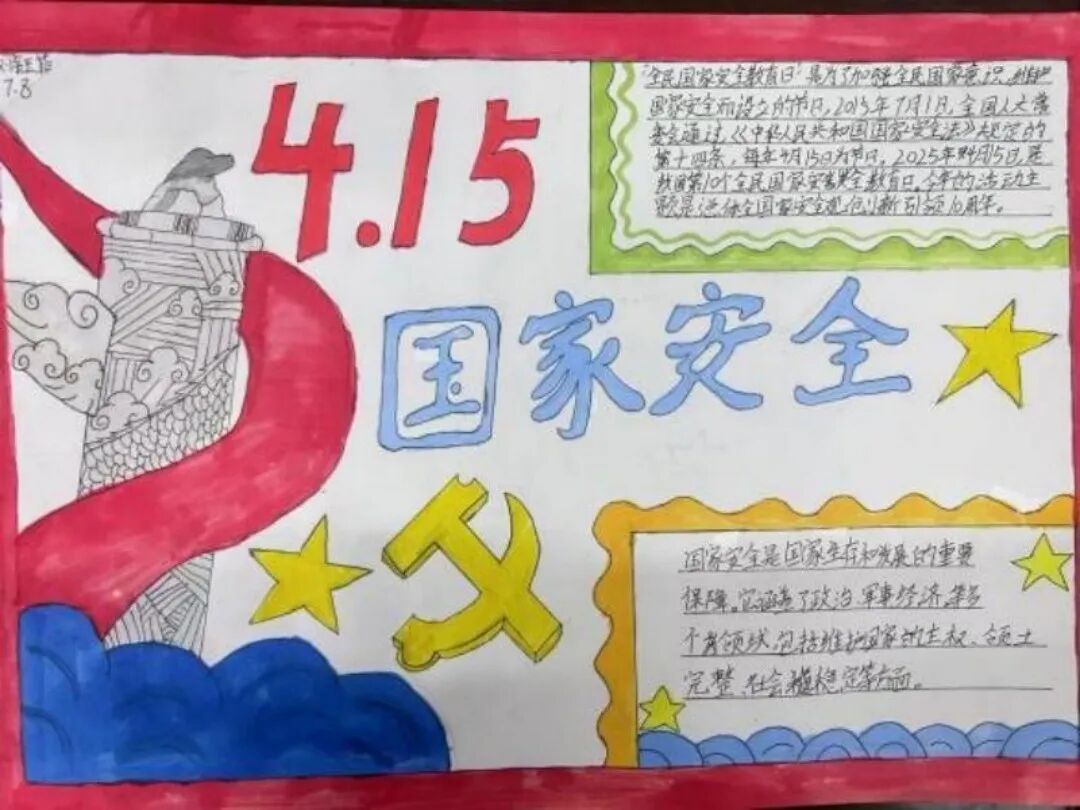 7.8
4.15
"全民国家安全教育日"是为了加强全民国家意识,维护
国家安全而设立的节日,2015年7月1日,全国人大常
委会通过《中华人民共和国国家安全法》规定的
第十四条,每年4月15日为节日。2025年4月15日,是
我国第10个全民国家安全教育日。今年的活动主
题是总体国家安全观 创新引领10周年。
国家安全
国家安全是国家生存和发展的重要
保障。它涵盖了政治 军事 经济 等多
个领域,包括维护国家的主权、领土
完整、社会稳定等方面。